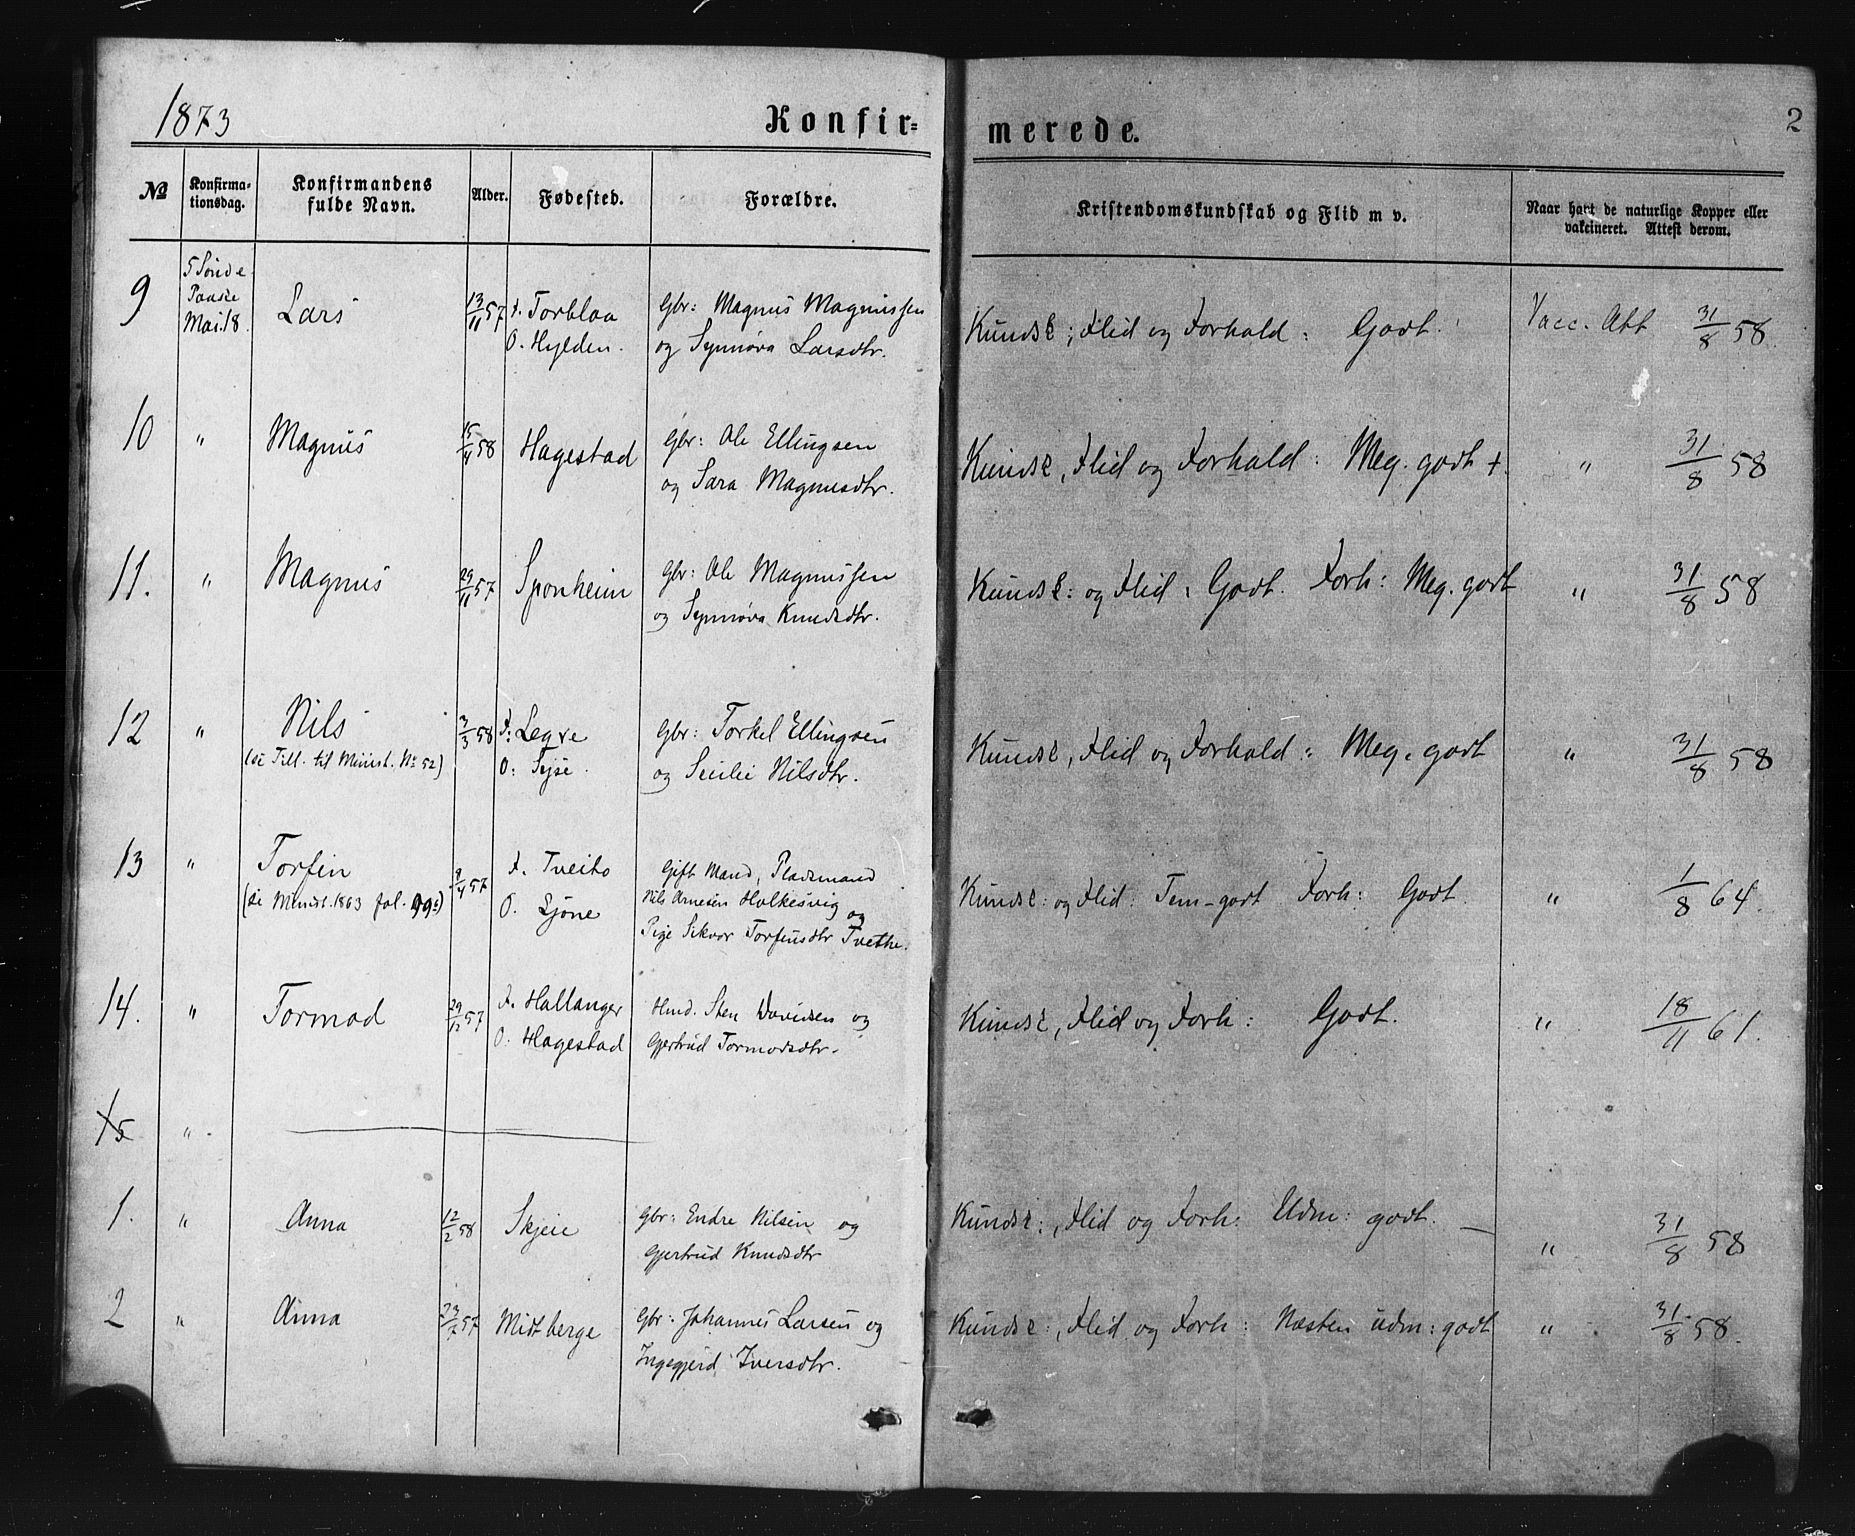 1873
Konfir=
merede.
2
No
Konfirma-
tionsdag.
Konfirmandens
fulde Navn.
Alder.
Fødested.
Forældre.
Kristendomskundskab og Flid m v.
Naar havt de naturlige Kopper eller
vakcineret. Attest derom.
9
5 Sönd e.
Paaske
Mai.18.
Lars
13/11 57
f. Torblaa
O. Hylden.
Gbr: Magnus Magnussen
og Synnöva Larsdtr.
Kundsk; Flid og Forhold: Godt.
Vacc. Att 31/8 58.
10 " Magnus 15/4 58 Hagestad
Gbr: Ole Ellingsen
og Sara Magnusdtr.
Kundsk, Flid og Forhold: Meg. godt +.
" 31/8 58
11. " Magnus 29/11 57 Sponheim
Gbr: Ole Magnussen
og Synnöva Knudsdtr.
Kundsk: og Flid: Godt. Forh: Meg. godt
" 31/8 58
12 " Nils
(se Till. til Minist. No 52)
3/3 58
f: Legre
O: Sejse.
Gbr: Torkel Ellingsen
og Secilie Nilsdtr.
Kundsk, Flid og Forhold: Meg. godt
" 31/8 58
13 " Torfin
(se Minist. 1863 fol. 99)
9/4 57
f. Tveito
O. Ljöne
Gift Mand, Pladsmand
Nils Arnesen Holkesvig og
Pige Sikvor Torfinsdtr Tvethe.
Kundsk: og Flid: Tem-godt Forh: Godt.
" 1/8 64.
14. " Tormod 29/12 57
f. Hallanger
O: Hagestad
Hmd. Sten Davidsen og
Gjertrud Tormodsdtr.
Kundsk, Flid og Forh: Godt.
" 18/11 61.
15 "
1. " Anna 12/2 58 Skjeie
Gbr: Endre Nilsen og
Gjertrud Knudsdtr
Kundsk:, Flid og Forh: Udm: godt. —
" 31/8 58
2 " Anna 23/7 57 Midtberge
Gbr: Johannes Larsen og
Ingegjerd Iversdtr.
Kundsk:, Flid og Forh: Næsten udm: godt
" 31/8 58.